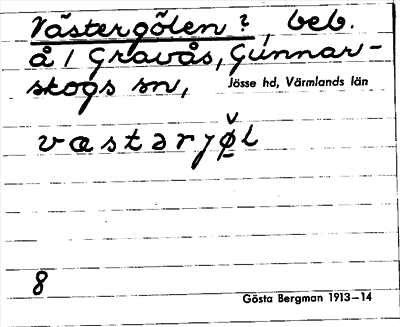 Västergölen?, beb.
å 1 Gravås, Gunnar-
skogs sn, Jösse hd, Värmlands län
vastərjø̭̌l
8
Gösta Bergman 1913–14